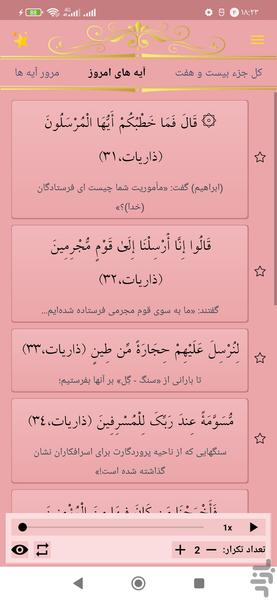 ۱۸:۲۳
کل جزء بیست و هفت
آیه های امروز
مرور آیه ها
۞ قَالَ فَمَا خَطْبُكُمْ أَيُّهَا الْمُرْسَلُونَ
(ذاریات،۳۱)
(ابراهیم) گفت: «مأموریت شما چیست ای فرستادگان
(خدا)؟»
قَالُوا إِنَّا أُرْسِلْنَا إِلَىٰ قَوْمٍ مُّجْرِمِينَ
(ذاریات،۳۲)
گفتند: «ما به سوی قوم مجرمی فرستاده شده‌ایم...
لِنُرْسِلَ عَلَيْهِمْ حِجَارَةً مِّن طِينٍ (ذاریات،۳۳)
تا بارانی از «سنگ - گِل» بر آنها بفرستیم؛
مُّسَوَّمَةً عِندَ رَبِّكَ لِلْمُسْرِفِينَ (ذاریات،۳۴)
سنگهایی که از ناحیه پروردگارت برای اسرافکاران نشان
گذاشته شده است!»
فَأَخْرَجْنَا مَن كَانَ فِيهَا مِنَ الْمُؤْمِنِينَ
1x
تعداد تکرار: 2
بازار